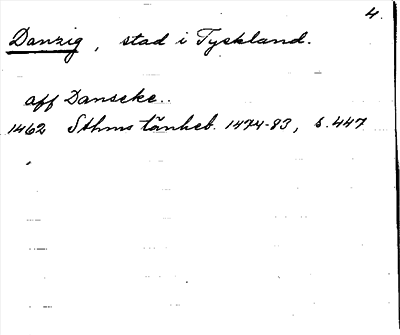 4.
Danzig, stad i Tyskland.
aff Danscke..
1462 Sthms tänkeb. 1474-83, s. 447